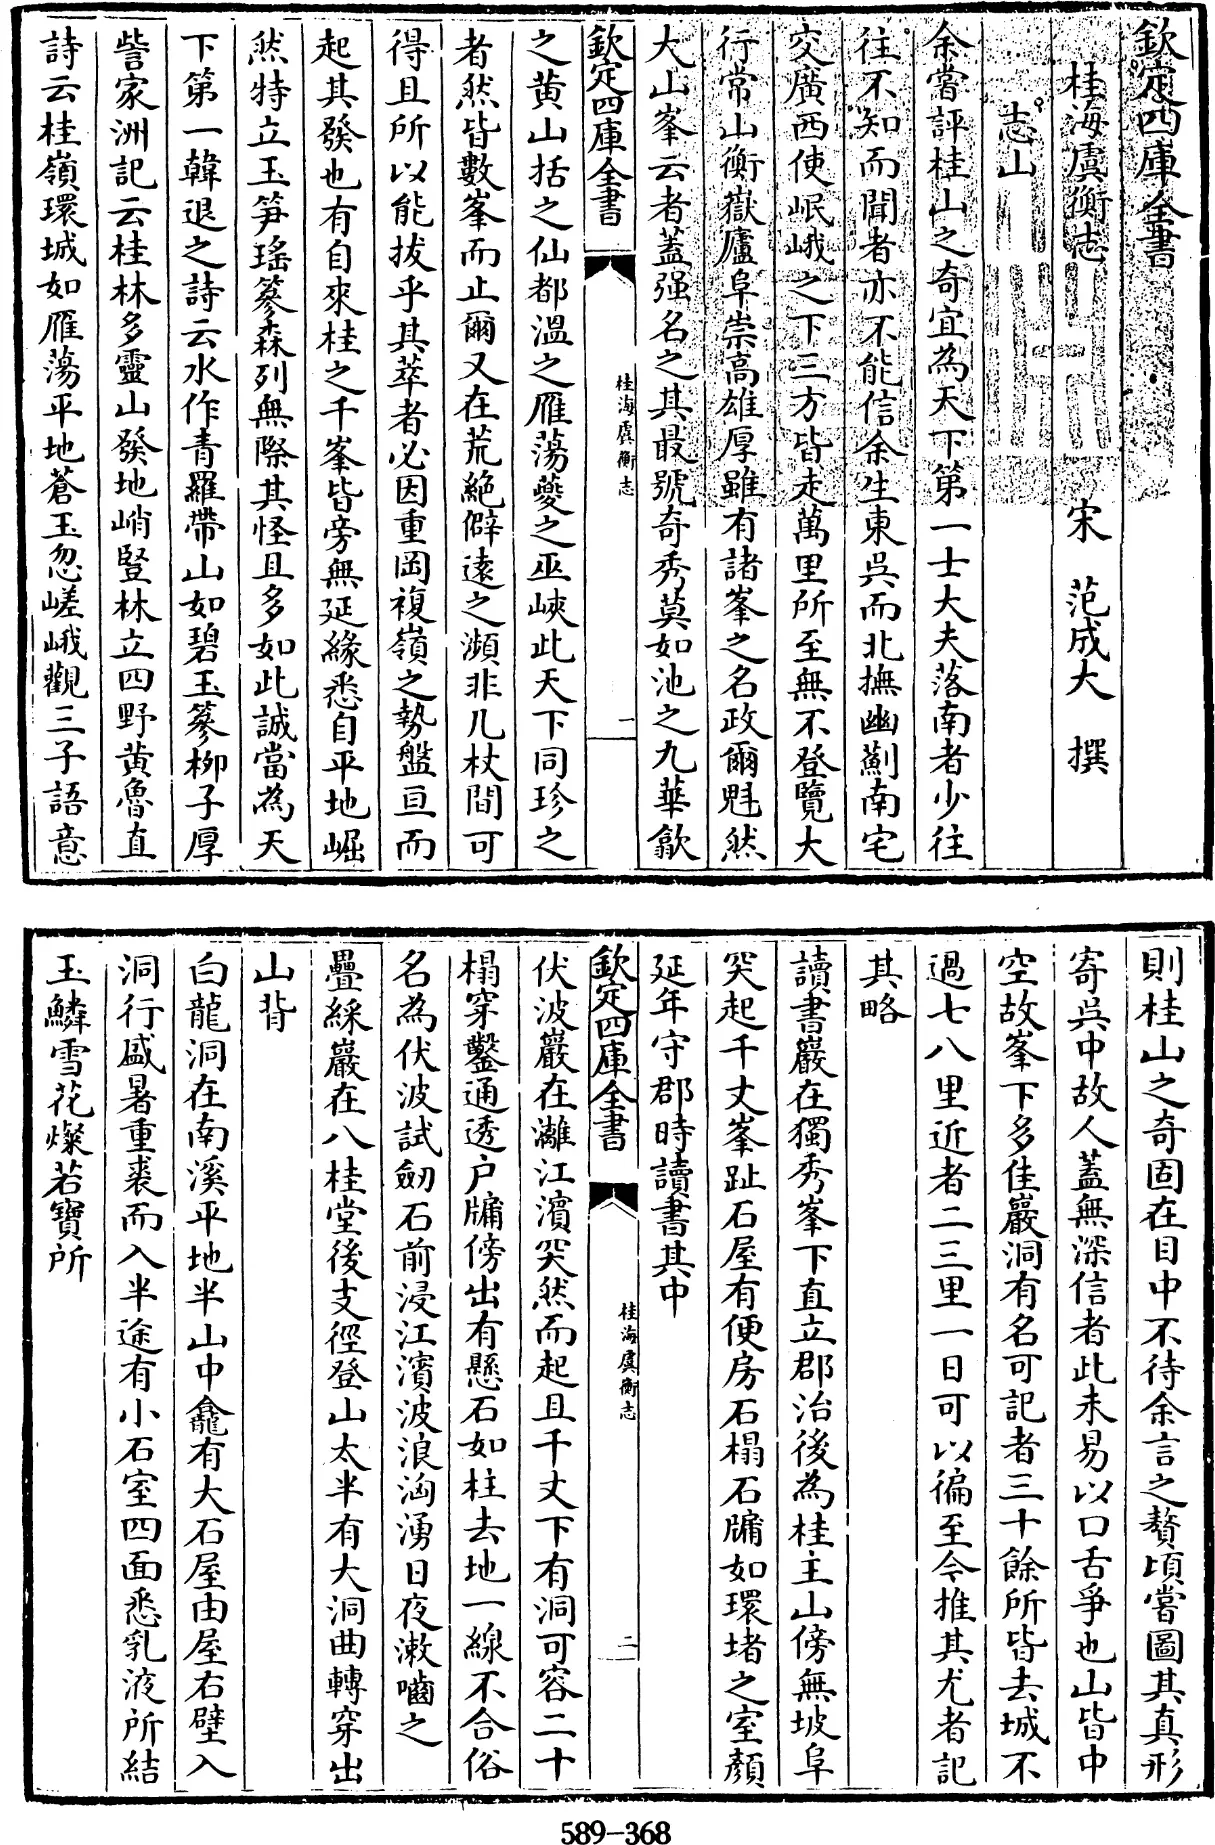 欽定四庫全書
桂海虞衡志 宋 范成大 撰
志山
余嘗評桂山之奇宜為天下第一士大夫落南者少往
往不知而聞者亦不能信余生東吳而北撫幽薊南宅
交廣西使岷峨之下三方皆走萬里所至無不登覽大
行常山衡嶽廬阜崇高雄厚雖有諸峯之名政爾魁然
大山峯云者蓋强名之其最號奇秀莫如池之九華歙
欽定四庫全書 桂海虞衡志 一
之黄山括之仙都溫之雁蕩夔之巫峽此天下同珍之
者然皆數峯而止爾又在荒絶僻逺之瀕非几杖間可
得且所以能拔乎其萃者必因重岡複嶺之勢盤亘而
起其發也有自來桂之千峯皆旁無延緣悉自平地崛
然特立玉笋瑤篸森列無際其怪且多如此誠當為天
下第一韓退之詩云水作青羅帶山如碧玉篸栁子厚
訾家洲記云桂林多靈山發地峭豎林立四野黄魯直
詩云桂嶺環城如雁蕩平地蒼玉忽嵯峨觀三子語意
則桂山之奇固在目中不待余言之贅頃嘗圖其真形
寄吳中故人蓋無深信者此未易以口舌爭也山皆中
空故峯下多佳巖洞有名可記者三十餘所皆去城不
過七八里近者二三里一日可以徧至今推其尤者記
其略
讀書巖在獨秀峯下直立郡治後為桂主山傍無坡阜
突起千丈峯趾石屋有便房石榻石牖如環堵之室顏
延年守郡時讀書其中
欽定四庫全書 桂海虞衡志 二
伏波巖在灕江濱突然而起且千丈下有洞可容二十
榻穿鑿通透户牖傍出有懸石如柱去地一線不合俗
名為伏波試劒石前浸江濱波浪洶湧日夜漱嚙之
疊綵巖在八桂堂後支徑登山太半有大洞曲轉穿出
山背
白龍洞在南溪平地半山中龕有大石屋由屋右壁入
洞行盛暑重裘而入半途有小石室四面悉乳液所結
玉鱗雪花燦若寶所
589-368